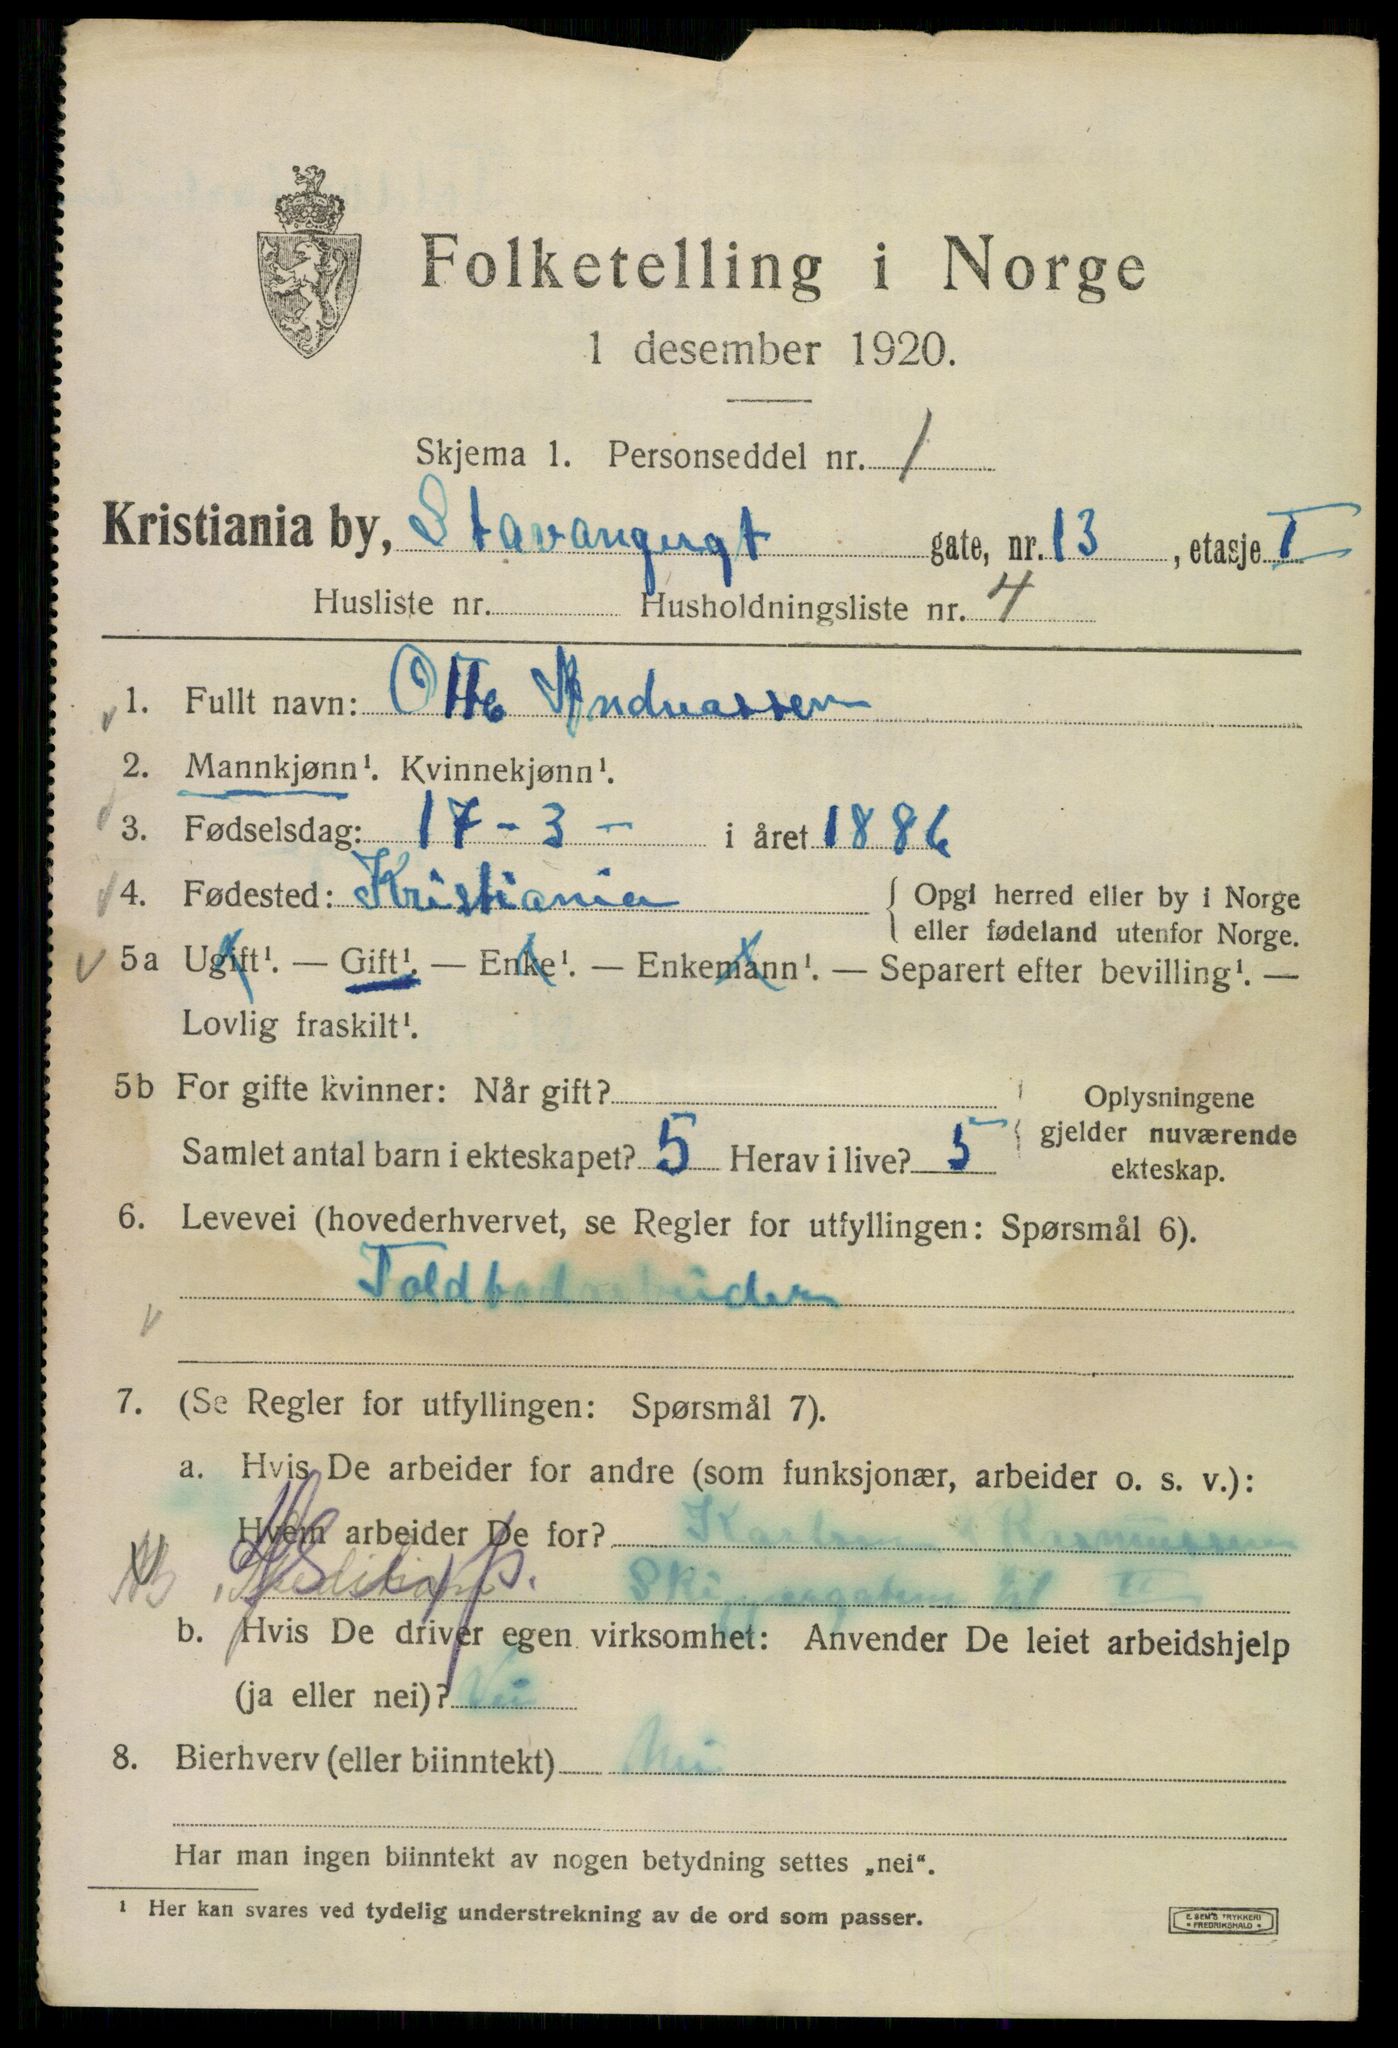 Folketelling i Norge
1 desember 1920.
Skjema 1. Personseddel nr. 1
Kristiania by, Stavangergt gate, nr. 13, etasje I
Husliste nr. Husholdningsliste nr. 4
1. Fullt navn: Otto Andreassen
2. Mannkjønn¹. Kvinnekjønn¹.
3. Fødselsdag: 17 - 3 - i året 1886
4. Fødested: Kristiania { Opgi herred eller by i Norge
eller fødeland utenfor Norge.
5a Ugift¹. — Gift¹. — Enke¹. — Enkemann¹. — Separert efter bevilling¹. —
Lovlig fraskilt¹.
5b For gifte kvinner: Når gift? Oplysningene
gjelder nuværende
Samlet antal barn i ekteskapet? 5 Herav i live? 5
ekteskap.
6. Levevei (hovederhvervet, se Regler for utfyllingen: Spørsmål 6).
Toldbodarbeider
7. (Se Regler for utfyllingen: Spørsmål 7).
a. Hvis De arbeider for andre (som funksjonær, arbeider o. s. v.):
Hvem arbeider De for? Karlsen & Rasmussen
Skippergaten II
b. Hvis De driver egen virksomhet: Anvender De leiet arbeidshjelp
(ja eller nei)? Nei
8. Bierhverv (eller biinntekt) Nei
Har man ingen biinntekt av nogen betydning settes „nei“.
¹ Her kan svares ved tydelig understrekning av de ord som passer.
E. SEM'S TRYKKERI
* FREDRIKSHALD *